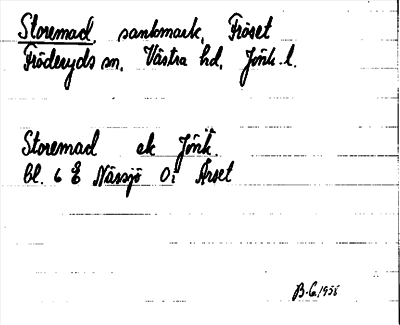 Storemad, sankmark, Fröset
Fröderyds sn, Västra hd, Jönk. l.
Storemad ek Jönk.
bl. 6 E Nässjö Oi Årset
B.G. 1958